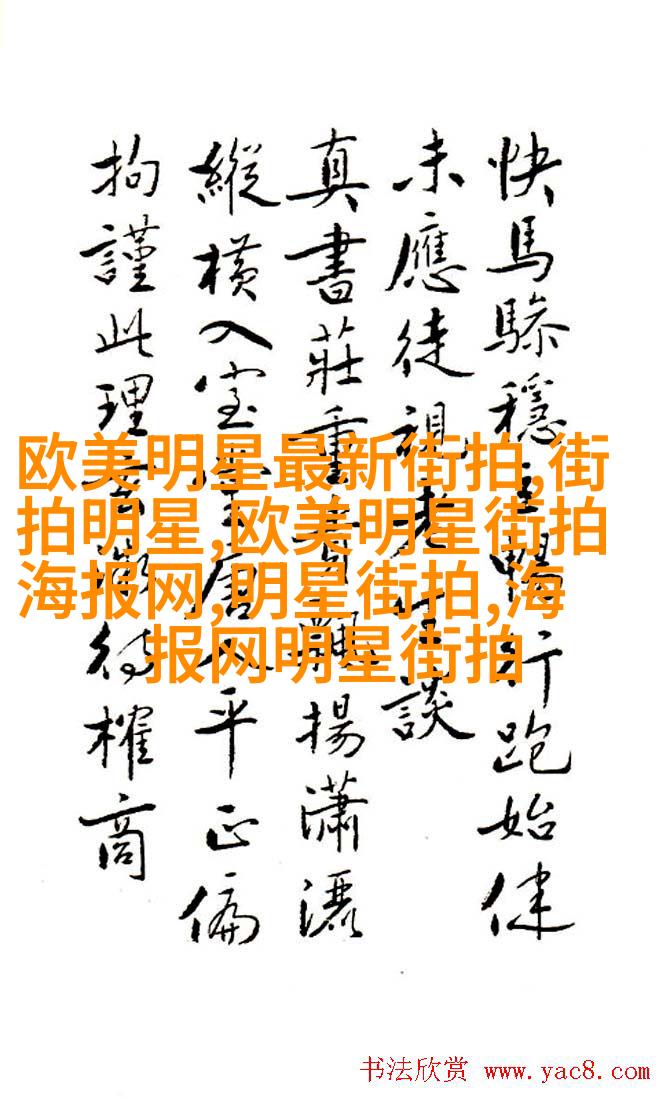 快馬驂穩行跑始健
未應徒視老生談
真書莊重有飄揚瀟灑
縱橫入室唐人平正偏
拘謹此理待榷商
欧美明星最新街拍,街
拍明星,欧美明星街拍
海报网,明星街拍,海
报网明星街拍
书法欣赏 www.yac8.com